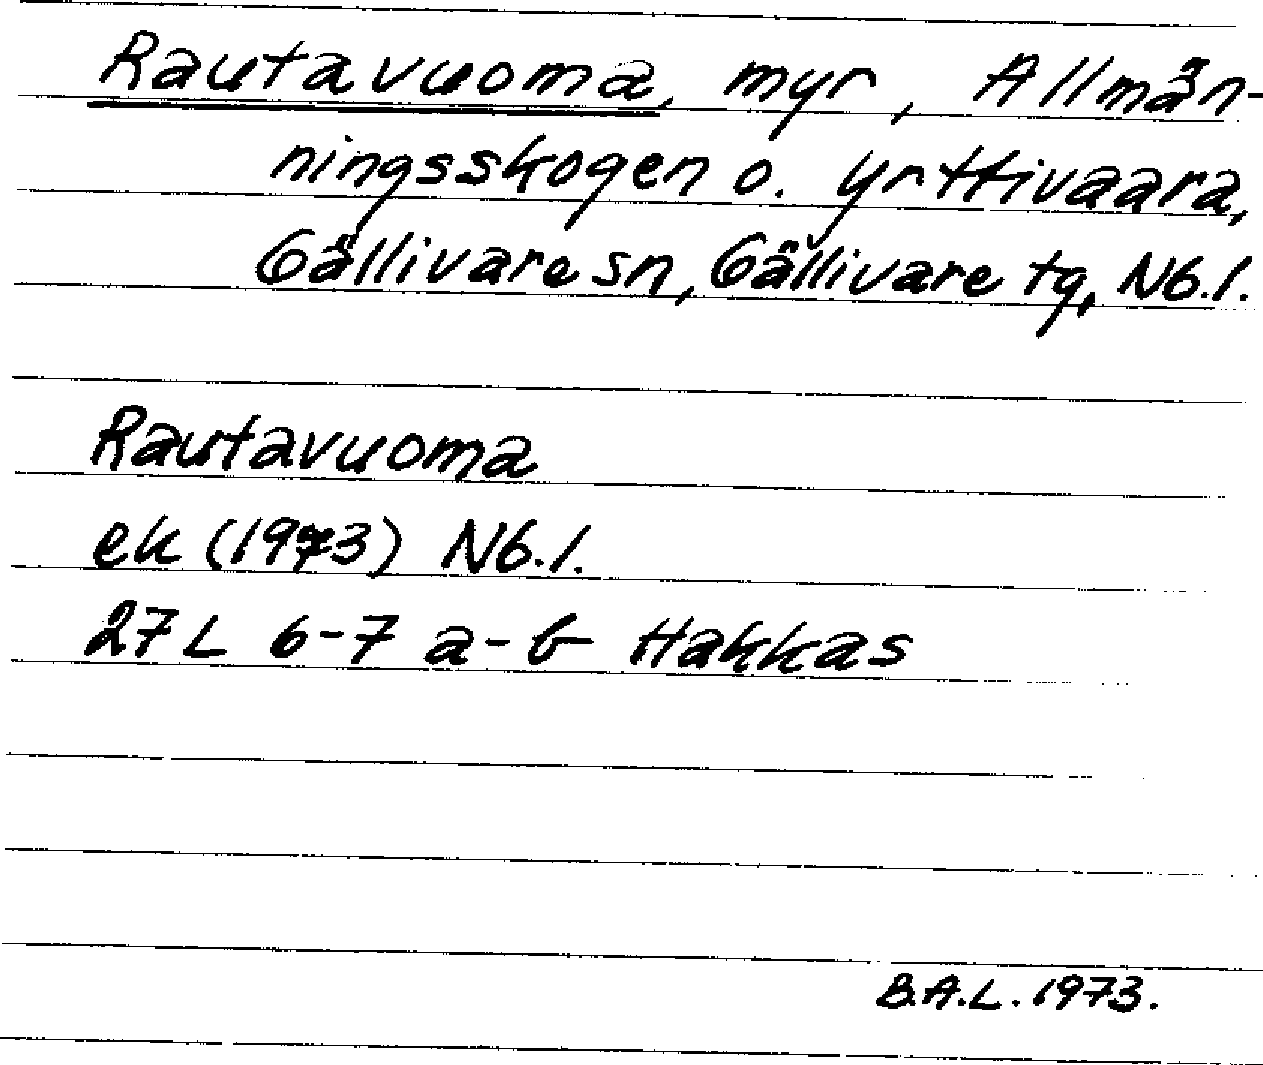 Rautavuoma, myr, Allmän-
ningsskogen o. Yrttivaara,
Gällivare sn, Gällivare tg, Nb.l.
Rautavuoma
ek (1973) Nb.l.
27 L 6-7 a-b Hakkas
B.A.L. 1973.